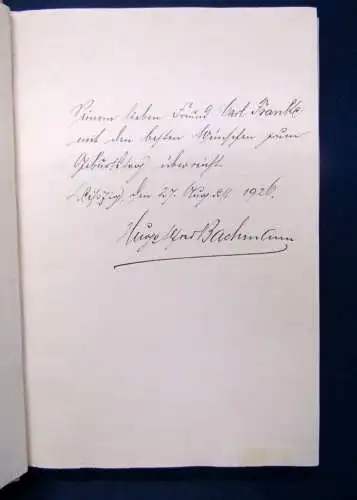 Seinem lieben Freund Carl Franke
mit den besten Wünschen zum
Geburtstag überreicht.
Leipzig, den 27. August 1926.
Hugo Bachmann